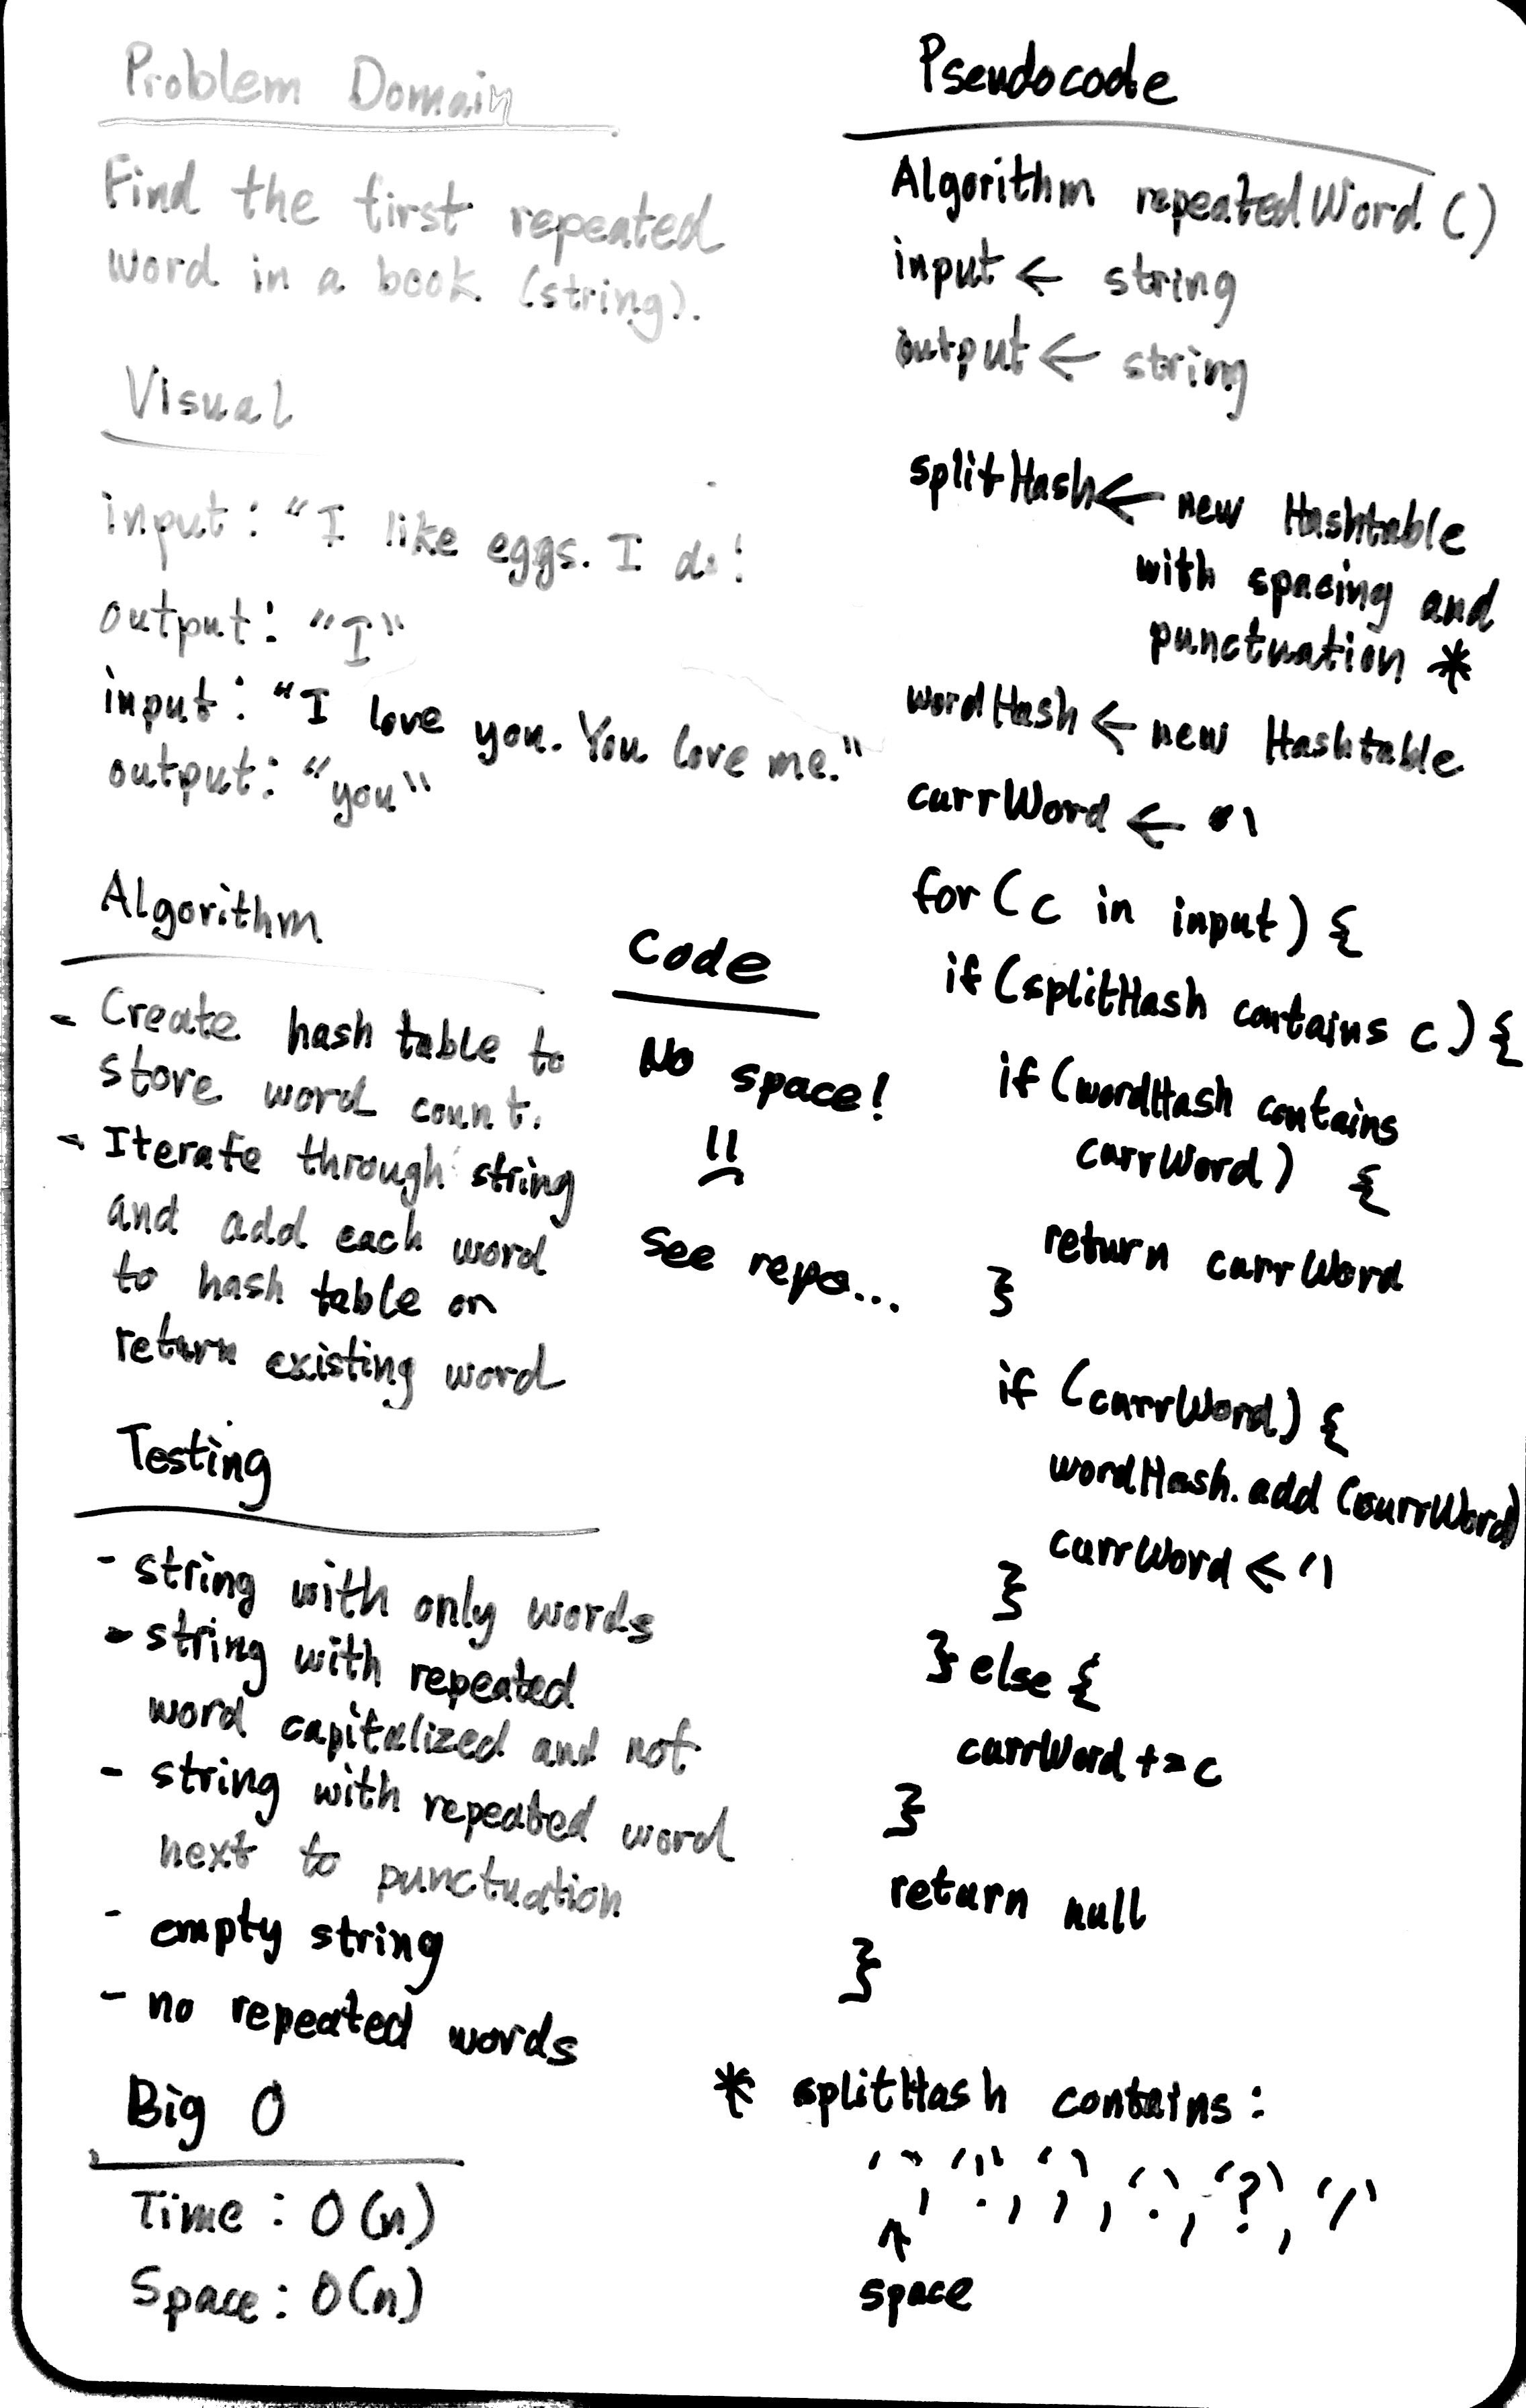 Problem Domain
Find the first repeated
word in a book (string).
Visual
input: "I like eggs. I do!
output: "I"
input: "I love you. You love me."
output: "you"
Algorithm
- Create hash table to
store word count.
- Iterate through string
and add each word
to hash table or
return existing word
Testing
- string with only words
- string with repeated
word capitalized and not
- string with repeated word
next to punctuation
- empty string
- no repeated words
Big O
Time: O(n)
Space: O(n)
Code
No space!
See repo...
Pseudocode
Algorithm repeatedWord()
input ← string
output ← string
splitHash ← new Hashtable
with spacing and
punctuation *
wordHash ← new Hashtable
currWord ← ''
for (c in input) {
if (splitHash contains c) {
if (wordHash contains
currWord) {
return currWord
}
if (currWord) {
wordHash.add (currWord)
currWord ← ''
}
} else {
currWord += c
}
return null
}
* splitHash contains:
' ', '!', ',', '.', '?', '/'
↑
space